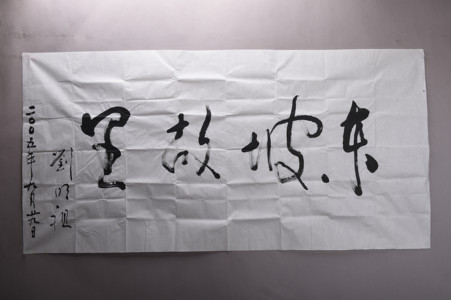 东坡故里
劉明祖
二〇〇五年九月日